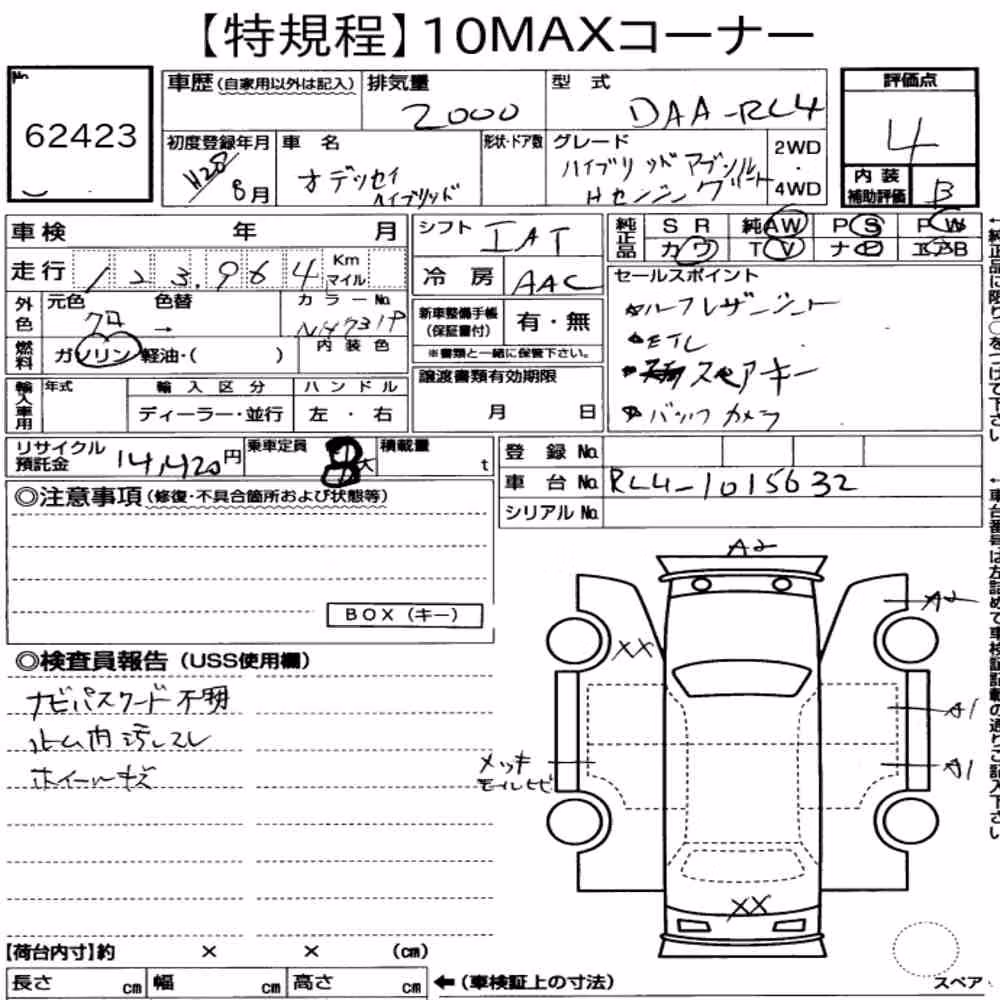 【特規程】10MAXコーナー
No
62423
車歴(自家用以外は記入)
排気量
2000
型式
DAA-RL4
評価点
4
初度登録年月
H28
8月
車名
オデッセイ
ハイブリッド
形状・ドア数
グレード
ハイブリッドアブソルート
Hセンシング
2WD
・
4WD
内装
補助評価
B
車検 年 月
シフト
IAT
純正品
SR 純AW PS PW
カワ TV ナビ エアB
走行 123,964 Km マイル
冷房
AAC
セールスポイント
ルーフレザーシート
ETC
スペアキー
バックカメラ
外色
元色
クロ
色替
→
カラーNo.
NH731P
新車整備手帳
(保証書付)
有・無
※書類と一緒に保管下さい。
燃料
ガソリン・軽油・( )
内装色
輸入車用
年式
輸入区分
ディーラー・並行
ハンドル
左・右
譲渡書類有効期限
月 日
リサイクル
預託金
14,420円
乗車定員
積載量
t
登録No.
車台No.
RL4-1015632
シリアルNo.
◎注意事項(修復・不具合箇所および状態等)
BOX(キー)
◎検査員報告(USS使用欄)
ナビパスワード不明
ホイールキズ
A2
A2
XX
A1
A1
メッキ
モールサビ
XX
【荷台内寸】約 × × (cm)
長さ cm 幅 cm 高さ cm
←(車検証上の寸法)
スペア
←純正品に限り○をつけて下さい
←車台番号は左詰めで車検証記載の通りご記入下さい